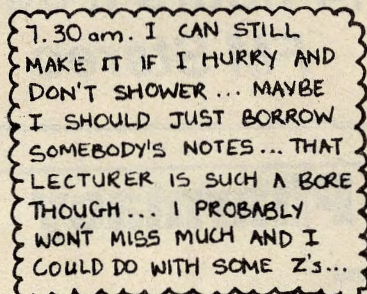 7.30 am. I CAN STILL
MAKE IT IF I HURRY AND
DON'T SHOWER... MAYBE
I SHOULD JUST BORROW
SOMEBODY'S NOTES... THAT
LECTURER IS SUCH A BORE
THOUGH... I PROBABLY
WON'T MISS MUCH AND I
COULD DO WITH SOME Z's...